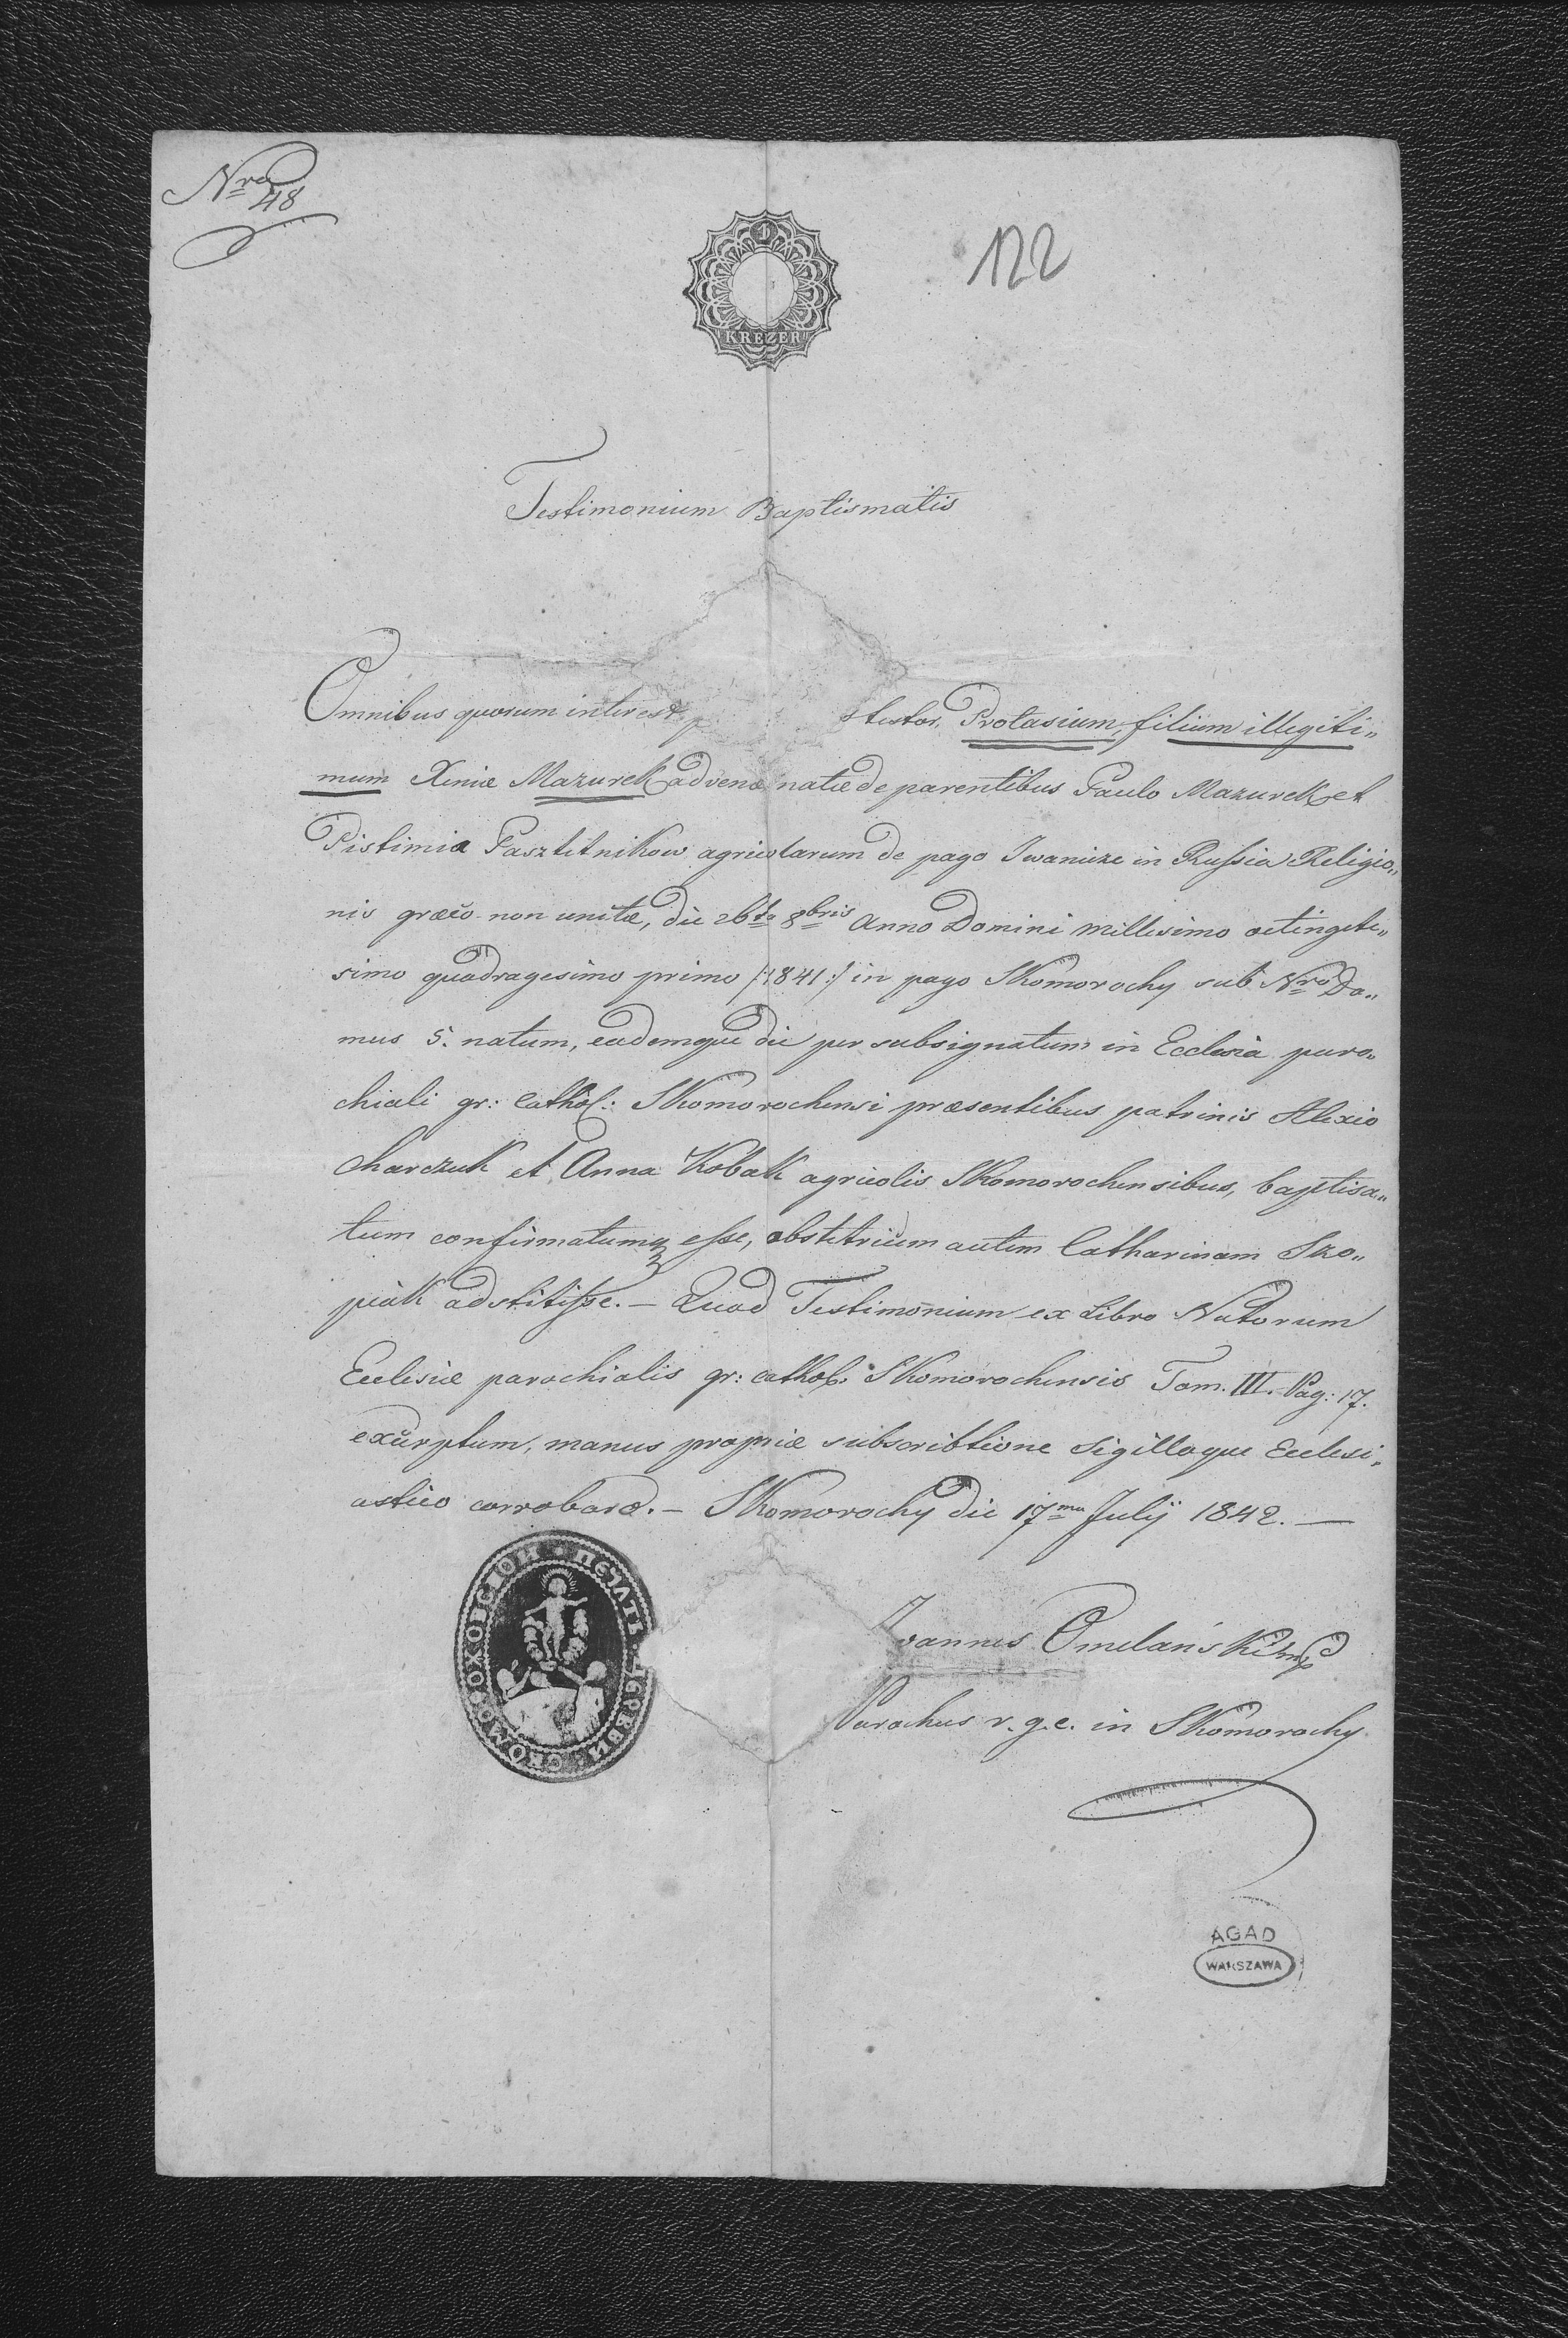 Nro 48
122
1
KREZER
Testimonium Baptismatis
Omnibus quorum interest testor, Protasium, filium illegiti„
mum Xeniæ Mazurek advenæ natæ de parentibus Paulo Mazurek et
Pistimia Pasztitnikow agricolarum de pago Iwanicze in Russia Religio„
nis græco non unitæ, die 26ta 8bris Anno Domini millesimo octingete„
simo quadragesimo primo /:1841:/ in pago Skomorochy sub Nro Do„
mus 5. natum, eademque die per subsignatum in Ecclesia paro„
chiali gr: Cathol: Skomorochensi præsentibus patrinis Alexio
Charczuk et Anna Kobak agricolis Skomorochensibus, baptisa„
tum confirmatumq esse, obstetricem autem Catharinam Szo„
piak adstitisse. — Quod Testimonium ex Libro Natorum
Ecclesiæ parochialis gr: cathol: Skomorochensis Tom. III. Pag: 17.
excerptum, manus propriæ subscribtione Sigilloque Ecclesi„
astico corroboro. — Skomorochy die 17ma Julij 1842. —
ПЕЧАТЬ ЦЕРКВИ СКОМОРОХОВСКОИ
Joannes Omelański mp
Parochus r. g. c. in Skomorochy
AGAD
WARSZAWA